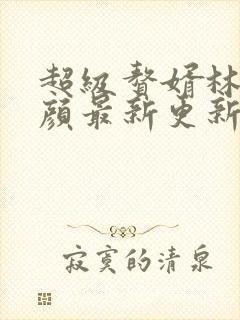 超级赘婿林
颜最新更新
寂寞的清泉